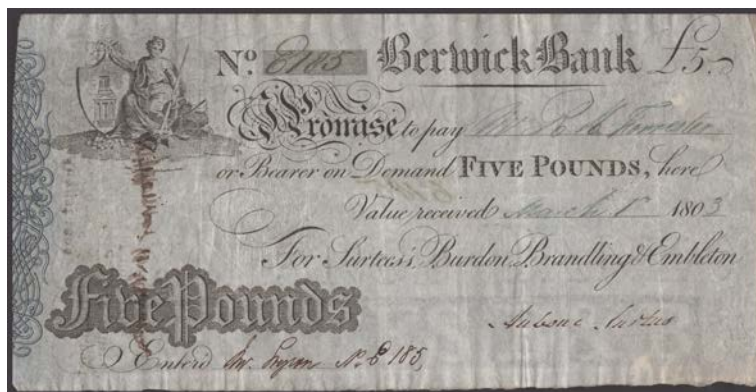 No. E185 Berwick Bank £5.-
I Promise to pay Mr. Robt. Forrester
or Bearer on Demand FIVE POUNDS, here
Value received March 1st 1803
For Surtees's, Burdon, Brandling & Embleton
Five Pounds
Aubone Surtees
Enterd No. E185